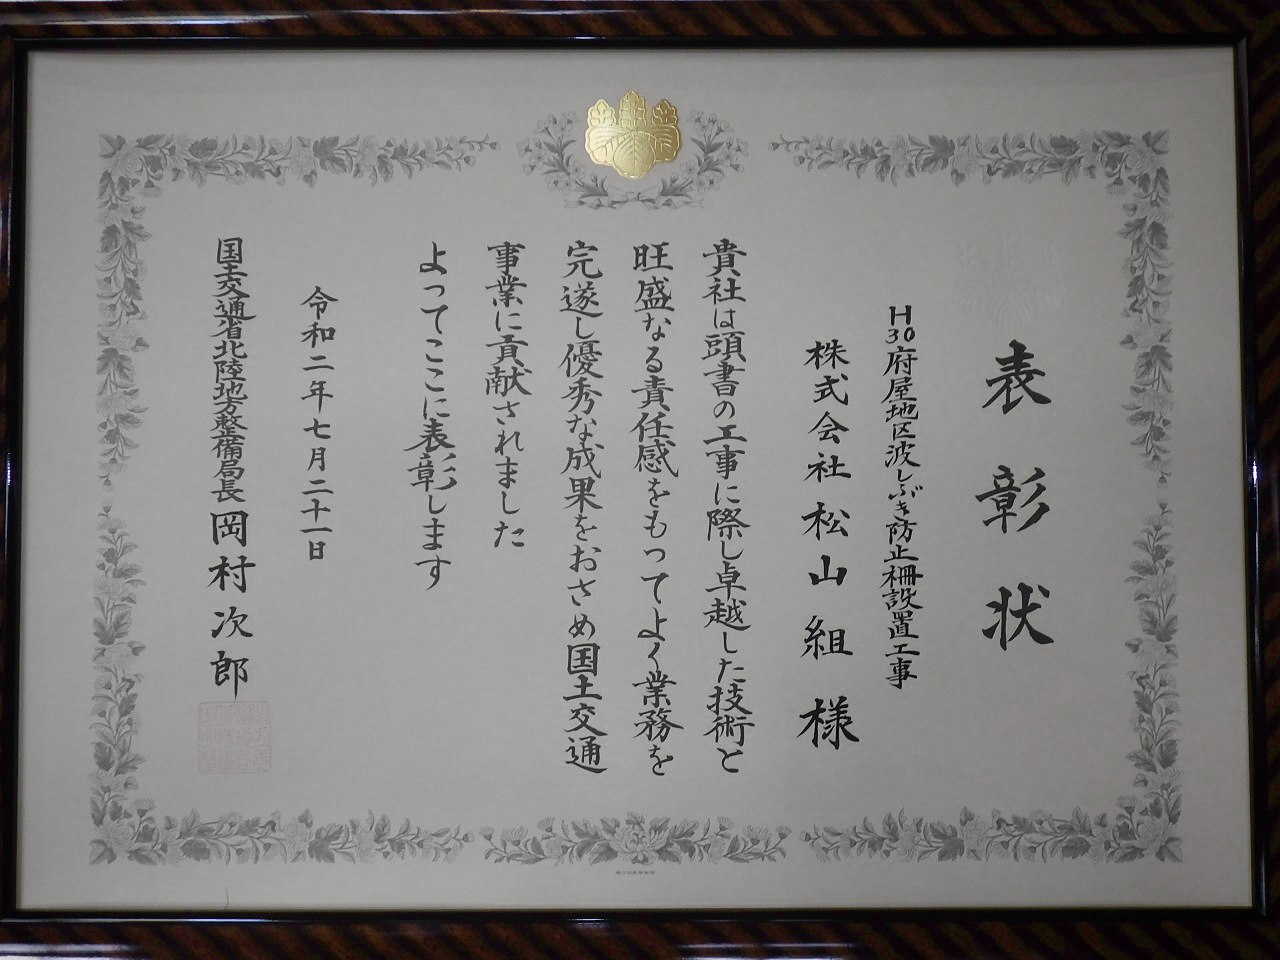 表彰状
H30府屋地区波しぶき防止柵設置工事
株式会社松山組様
貴社は頭書の工事に際し卓越した技術と
旺盛なる責任感をもってよく業務を
完遂し優秀な成果をおさめ国土交通
事業に貢献されました
よってここに表彰します
令和二年七月二十一日
国土交通省北陸地方整備局長岡村次郎